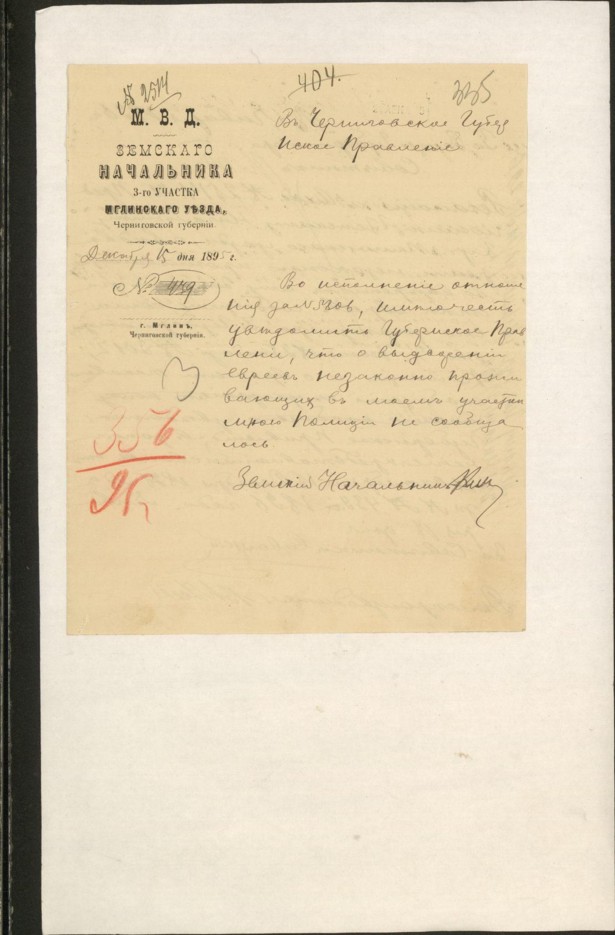 № 2514
404.
335
М. В. Д.
ЗЕМСКАГО
НАЧАЛЬНИКА
3-го УЧАСТКА
МГЛИНСКАГО УѢЗДА,
Черниговской губерніи.
Декабря 15 дня 1895 г.
№ 449
г. Мглинъ,
Черниговской губерніи.
356
95
Въ Черниговское Губер
нское Правленіе
Во исполненіе отноше
нія за № 5806, имѣю честь
увѣдомить Губернское Прав
леніе, что о выдвореніи
Евреевъ незаконно прожи
вающихъ въ моемъ участкѣ
мною Полиціи не сообща
лось
Земскій Начальникъ